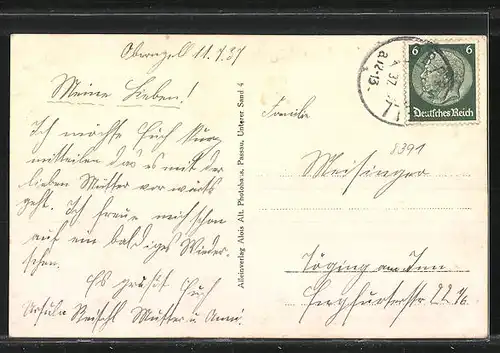 Obernzell 11.7.37
Meine Lieben!
Ich möchte Euch kurz
mitteilen das es mit der
lieben Mutter vorwärts
geht. Ich freue mich schon
auf ein baldiges Wieder-
sehen.
Es grüßt Euch
Ursula Mutter u. Anni.
Alleinverlag Alois Alt. Photohaus, Passau, Unterer Sand 4
6 6
Deutsches Reich
37.
a12-13
8391
Familie
Meisinger
Töging am Inn
22 1/6